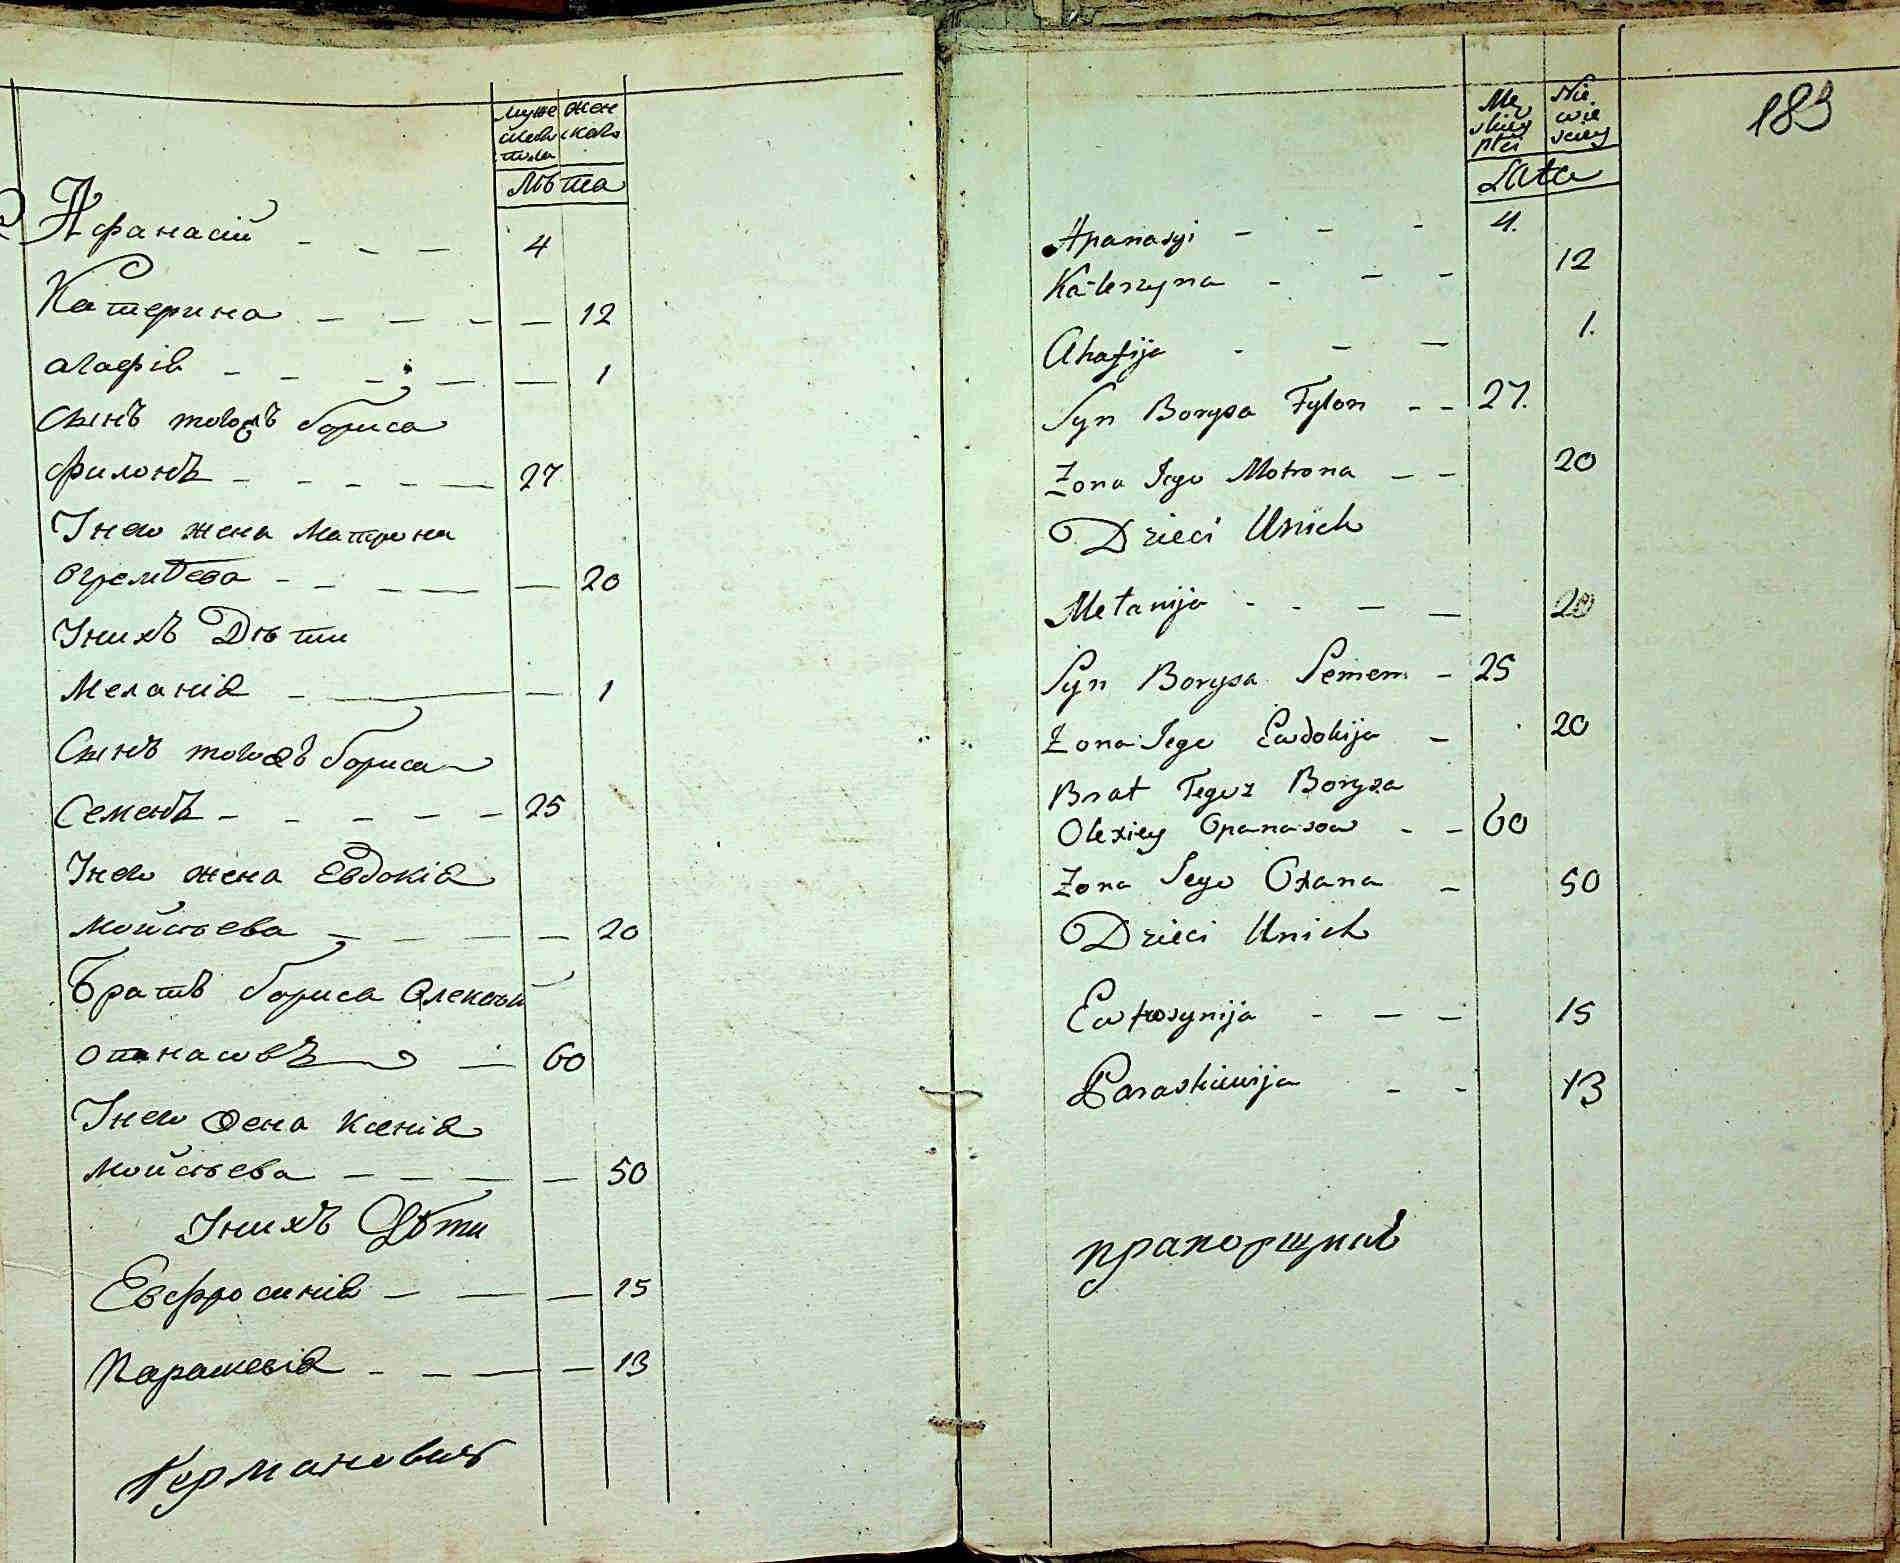 муже жен
скаго скаго
пола
Лѣта
Афанасій - - - 4
Катерина - - - - 12
агафія - - - - - 1
Сынъ тогожъ бориса
Филонъ - - - - - 27
У него жена Матрона
- - - - - 20
У нихъ Дѣти
Меланія - - - 1
Сынъ тогожъ бориса
Семенъ - - - - - 25
У него жена Евдокія
мойсѣева - - - - 20
Братъ бориса Олексѣй
опанасовъ - 60
У него жена Ксенія
мойсѣева - - - - 50
У нихъ Дѣти
Евфросинія - - - 15
Парашевія - - - - 13
Германовичъ
183
Mę Nie
skiey wie
płci sciey
Lata
Apanasyi - - - 4.
Katerzyna - - - 12
Ahafija - - - 1.
Syn Borysa Fylon - - 27.
Zona Iego Motrona - - 20
Dzieci Unich
Mełanija - - - - 20
Syn Borysa Semem - 25
Zona Iego Ewdokija - 20
Brat Tegoz Borysa
Olexiey Opanasow - - 60
Zona Iego Oxana - 50
Dzieci Unich
Ewfrosynija - - - 15
Paraskiewija - - 13
прапорщикъ